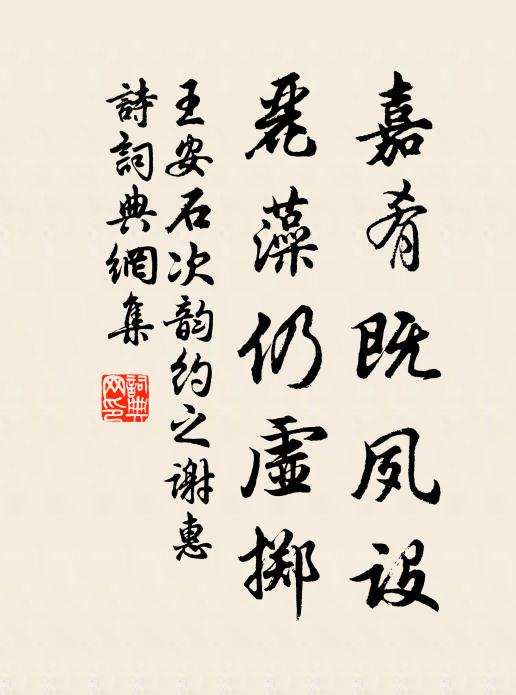 嘉肴既夙設
麗藻仍虛擲
王安石次韵約之謝惠
詩詞典網集
詞典網印